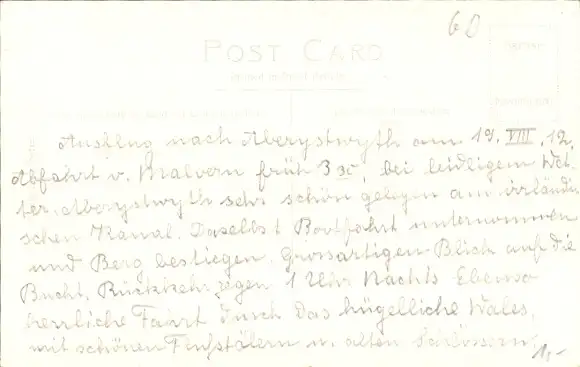 60
POST CARD
Ausflug nach Aberystwyth am 19. VIII. 12.
Abfahrt v. Malvern früh 3 35, bei leidligem Wet-
ter. Aberystwyth sehr schön gelegen am irländi-
schen Kanal. Daselbst Bootfahrt unternommen
und Berg bestiegen. Grossartigen Blick auf die
Bucht. Rückkehr gegen 1 Uhr Nachts. Ebenso
herrliche Fahrt durch das hügelliche Wales,
mit schönen Flusstälern u. alten Schlössern.
1,-